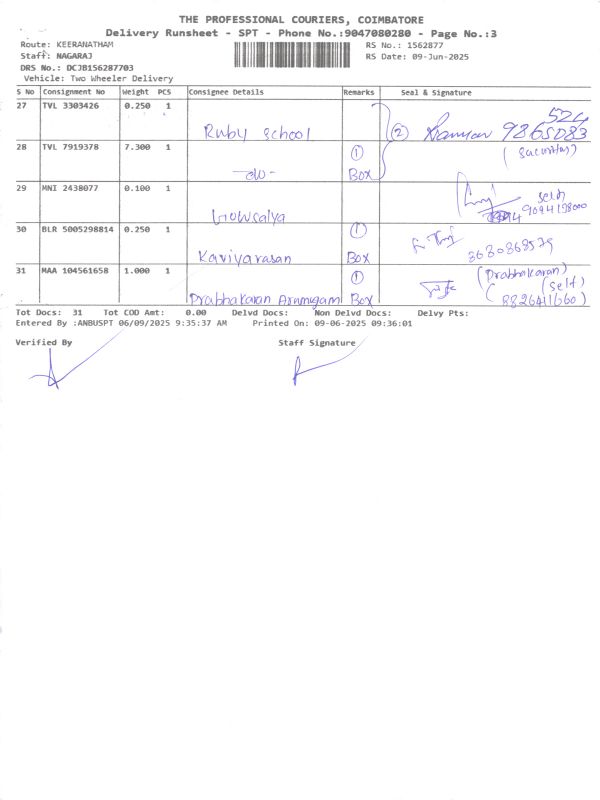 THE PROFESSIONAL COURIERS, COIMBATORE
Delivery Runsheet - SPT - Phone No.:9047080280 - Page No.:3
Route: KEERANATHAM
RS No.: 1562877
Staff: NAGARAJ
RS Date: 09-Jun-2025
DRS No.: DCJB156287703
Vehicle: Two Wheeler Delivery
S No Consignment No Weight PCS Consignee Details Remarks Seal & Signature
27 TVL 3303426 0.250 1 Ruby School 2 9865083 524
28 TVL 7919378 7.300 1 -do- 1 Box
29 MNI 2438077 0.100 1 Gowsalya self
30 BLR 5005298814 0.250 1 Kaviyarasan 1 Box
31 MAA 104561658 1.000 1 Prabhakaran Arumugam 1 Box (Prabhakaran) (self)
Tot Docs: 31 Tot COD Amt: 0.00 Delvd Docs: Non Delvd Docs: Delvy Pts:
Entered By :ANBUSPT 06/09/2025 9:35:37 AM Printed On: 09-06-2025 09:36:01
Verified By Staff Signature